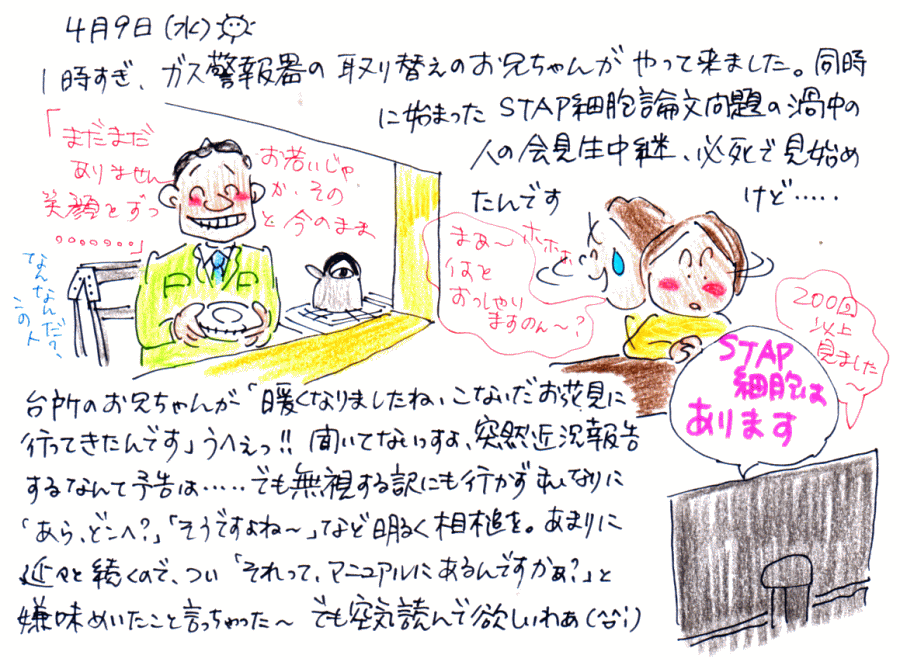 4月9日(水)
1時すぎ、ガス警報器の取り替えのお兄ちゃんがやって来ました。同時
に始まったSTAP細胞論文問題の渦中の
人の会見生中継、必死で見始め
たんです けど……
「まだまだ
ありません
笑顔とずっ
。。。。。。。」
お若いじゃ
か、その
と今のまま
なんなんだ?、
このト
ホホホ
まぁ〜
何と
おっしゃり
ますのん〜?
200回
以上
見ました〜
STAP
細胞は
あります
台所のお兄ちゃんが「暖くなりましたね、こないだお花見に
行ってきたんです」うへえっ!! 聞いてないっすよ、突然近況報告
するなんて予告は……でも無視する訳にも行かず私なりに
「あら、どこへ?」「そうですよね〜」など明るく相槌を。あまりに
延々と続くので、つい「それって、マニュアルにあるんですかぁ?」と
嫌味めいたこと言っちゃった〜 でも空気読んで欲しいわぁ(^^;)